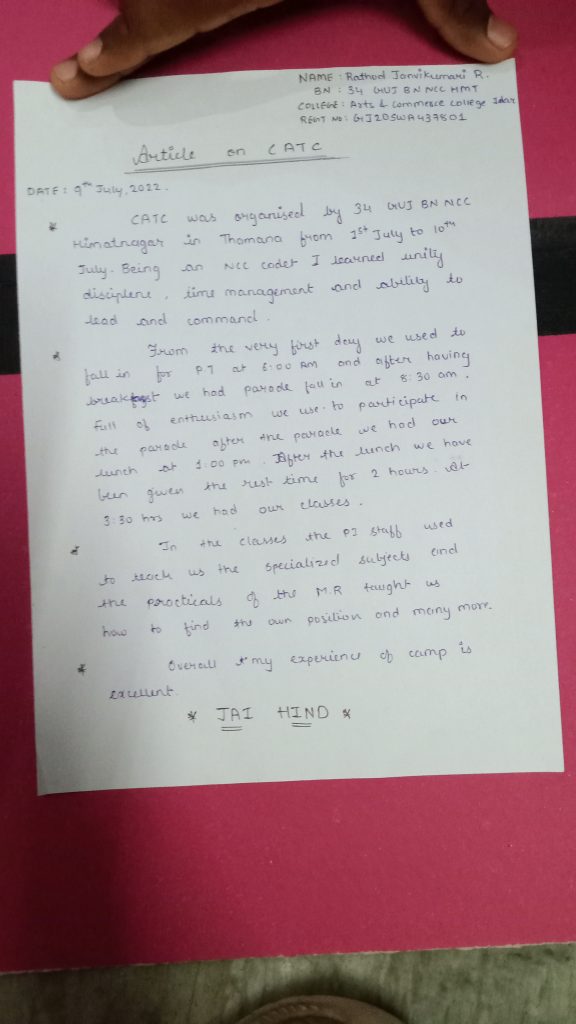 NAME : Rathod Janvikumari R.
BN : 34 GUJ BN NCC HMT
COLLEGE : Arts & Commerce College Idar
REGT NO : GJ20SWA437501
Article on CATC
DATE : 9th July, 2022.
* CATC was organised by 34 GUJ BN NCC
Himatnagar in Thamana from 1st July to 10th
July. Being an NCC cadet I learned unity
discipline, time management and ability to
lead and command.
* From the very first day we used to
fall in for P.T at 6:00 AM and after having
breakfast we had parade fall in at 8:30 am.
Full of enthusiasm we use to participate in
the parade after the parade we had our
lunch at 1:00 pm. After the lunch we have
been given the rest time for 2 hours. At
3:30 hrs we had our classes.
* In the classes the PI staff used
to teach us the specialized subjects and
the practicals of the M.R taught us
how to find the own position and many more.
* Overall my experience of camp is
excellent.
* JAI HIND *